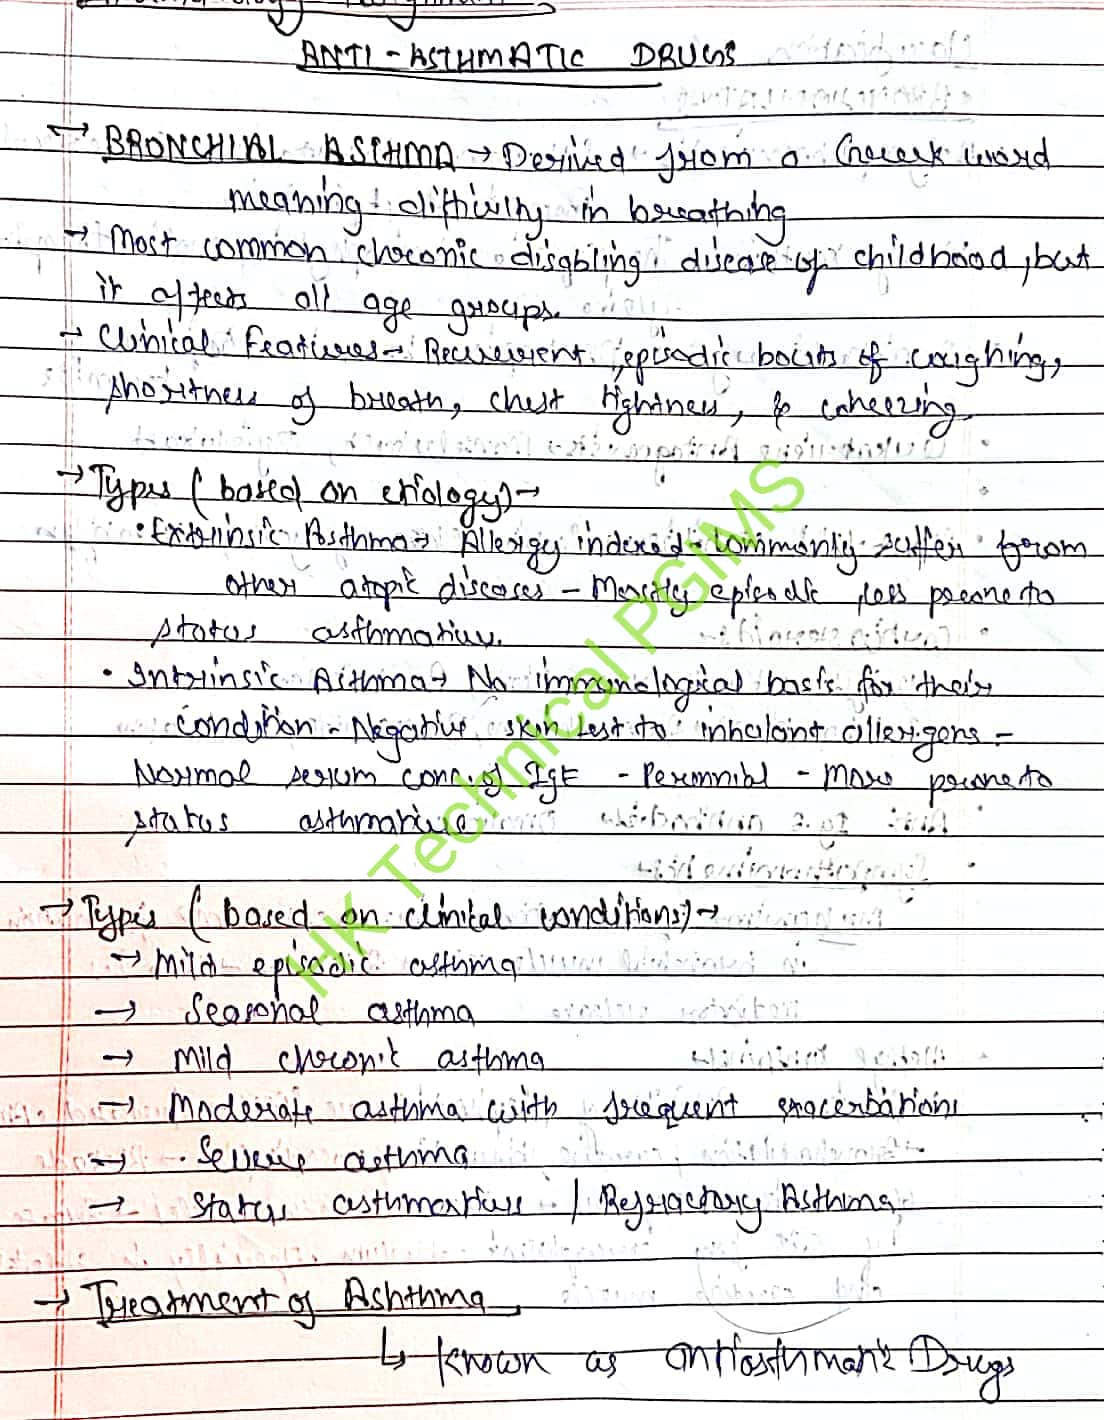 ANTI-ASTHMATIC DRUGS
→ BRONCHIAL ASTHMA → Derived from a Greek word
meaning difficulty in breathing
→ Most common chronic disabling disease of childhood, but
it affects all age groups.
→ Clinical Features → Recurrent, episodic bouts of coughing,
shortness of breath, chest tightness, & wheezing.
→ Types (based on etiology) →
• Extrinsic Asthma → Allergy indexed - commonly suffer from
other atopic diseases - Mostly episodic, less prone to
status asthmaticus.
• Intrinsic Asthma → No immunological basis for their
condition - Negative skin test to inhalant allergens -
Normal serum conc. of IgE - Perennial - More prone to
status asthmaticus
→ Types (based on clinical conditions) →
→ Mild episodic asthma
→ Seasonal asthma
→ Mild chronic asthma
→ Moderate asthma with frequent exacerbations
→ Severe asthma
→ Status asthmaticus / Refractory Asthma
→ Treatment of Ashthma
↳ Known as antiasthmatic Drugs
HK Technical PGIMS